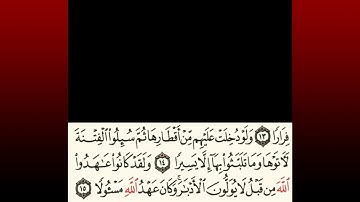 فِرَارًا ١٣ وَلَوْ دُخِلَتْ عَلَيْهِم مِّنْ أَقْطَارِهَا ثُمَّ سُئِلُوا۟ ٱلْفِتْنَةَ
لَءَاتَوْهَا وَمَا تَلَبَّثُوا۟ بِهَآ إِلَّا يَسِيرًا ١٤ وَلَقَدْ كَانُوا۟ عَٰهَدُوا۟
ٱللَّهَ مِن قَبْلُ لَا يُوَلُّونَ ٱلْأَدْبَٰرَ ۚ وَكَانَ عَهْدُ ٱللَّهِ مَسْـُٔولًا ١٥